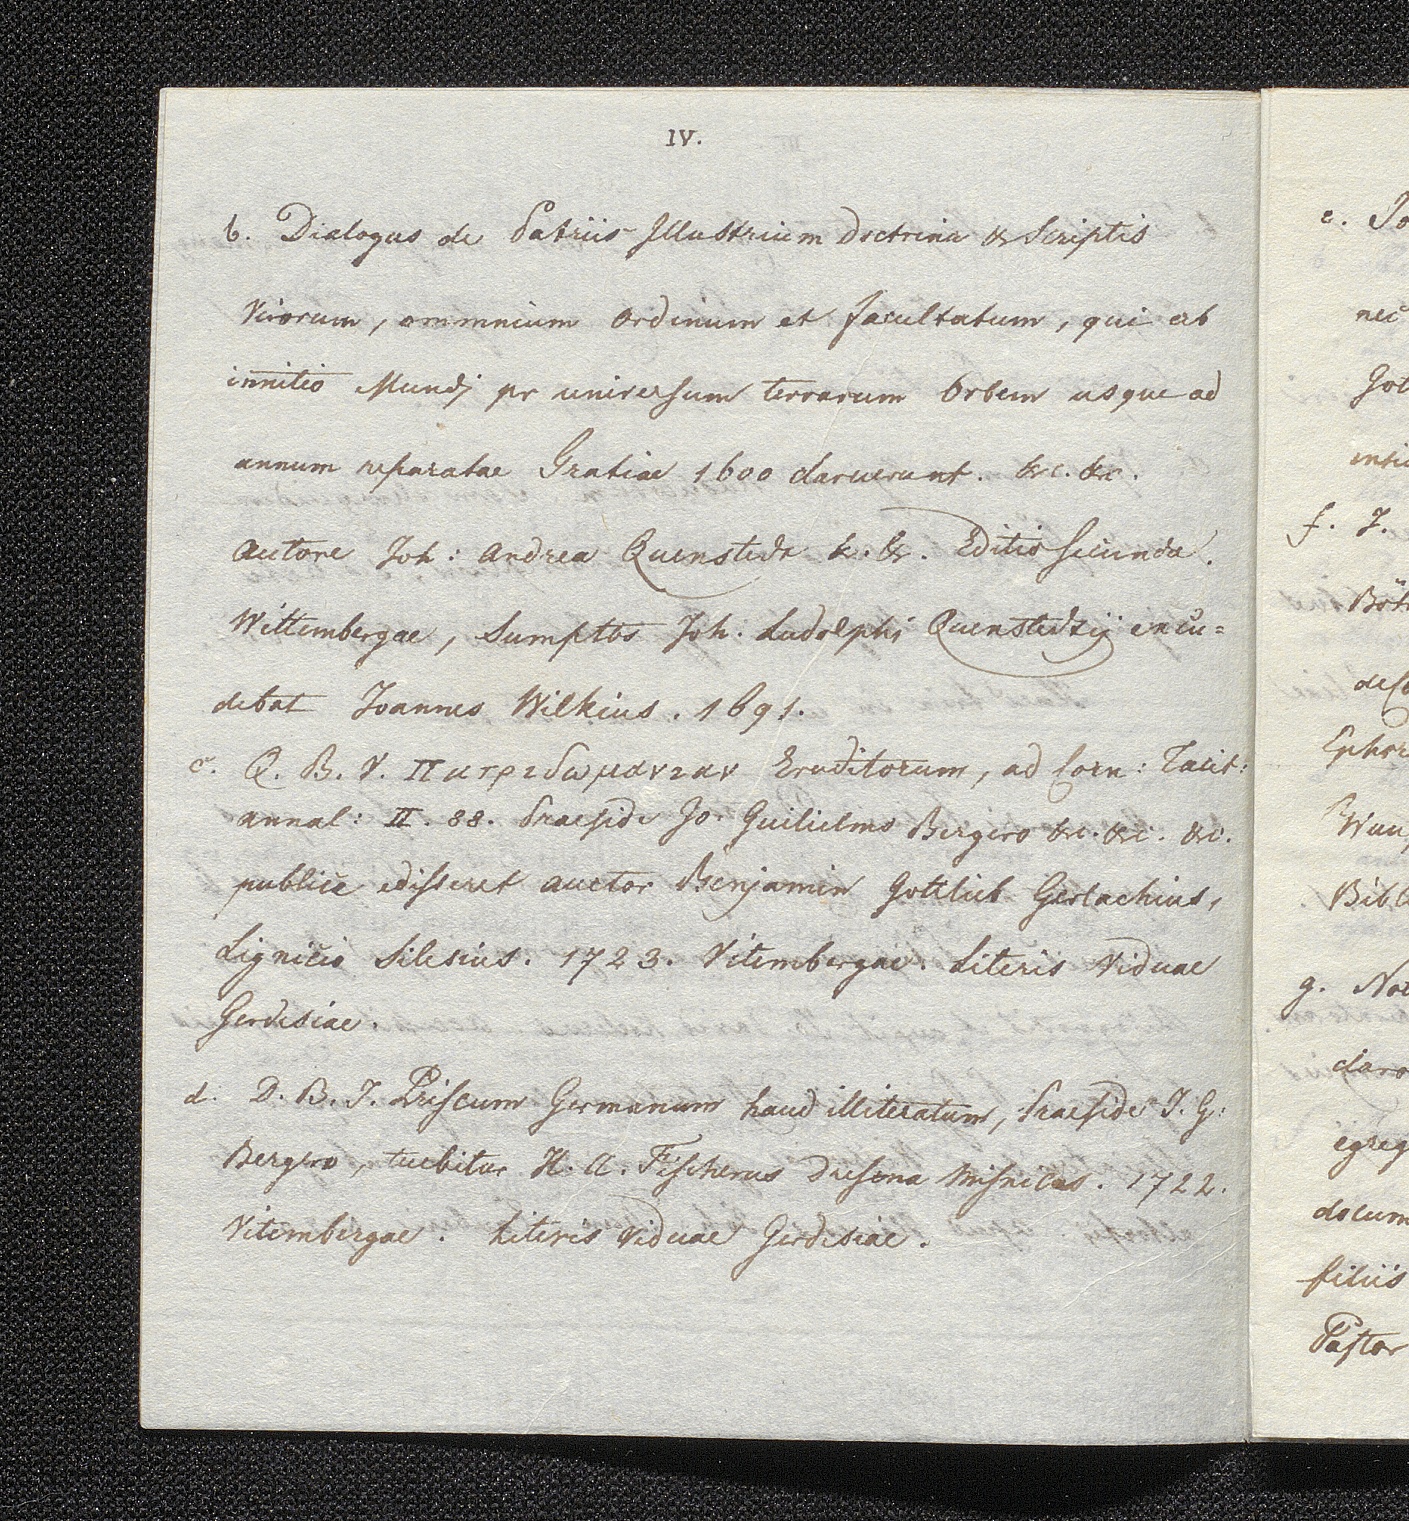 IV.
b. Dialogus de Patriis Illustrium Doctrina & Scriptis
Virorum, ommnium Ordinum et facultatum, qui ab
innitio Mundi pr universum terrarum Orbem usque ad
annum reparatae Gratiae 1600 claruerunt. &c. &c.
autore Joh: Andrea Quenstedt &. &. Editio secunda.
Wittembergae, Sumptbs Joh. Ludolphi Quenstedzij excu=
debat Joannes Wilkius. 1691.
c. Q. B. V. Πατριδωμανιαν Eruditorum, ad Corn: Tacit:
annal: II. 88. Praeside Jo. Guilielmo Bergero &c. &c. &c.
publice edisseret auctor Benjamin Gottlieb Gerlachius,
Lignicio Silesius. 1723. Vitembergae. Literis Viduae
Gerdesiae.
d. D. B. J. Priscum Germanum haud illiteratum, Praeside J. G:
Bergero, tuebitur H. A. Fischerus Dresena Misnicus. 1722.
Vitembergae. Literis Viduae Gerdesiae.
e. Jo
nec
Got
f. J.
Ephor
Bibl
g. Not
claro
egreg
docum
filiis
Pastor